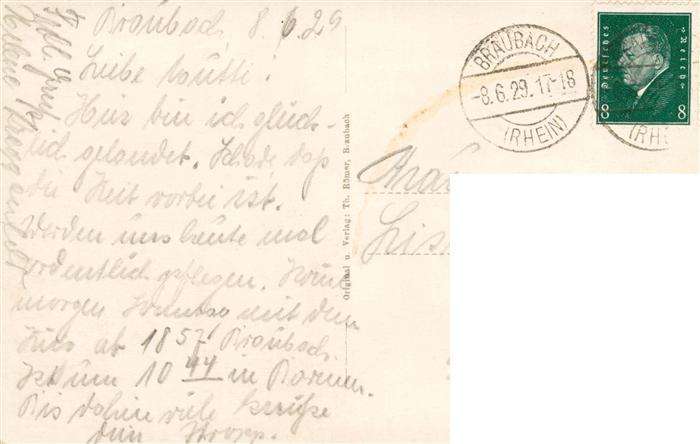 Braubach, 8.6.29
Liebe Mutti!
Hier bin ich glück-
lich gelandet. Schade daß
die Zeit vorbei ist.
Werden uns heute mal
ordentlich pflegen.
morgen mit dem
ab 18 57 Braubach.
um 10 44 in Barmen.
Bis dahin viele Grüße
dein
Original u. Verlag: Th. Römer, Braubach
BRAUBACH
-8.6.29.17-18
(RHEIN)
Deutsches Reich
8 8
(RHE